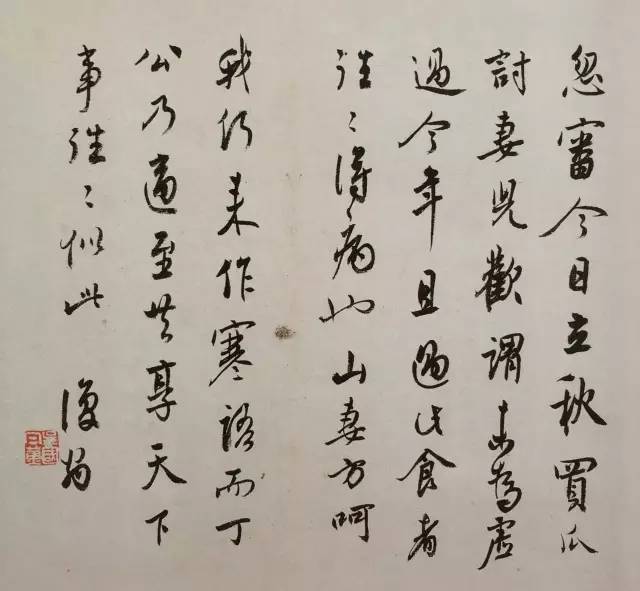 忽審今日立秋買瓜
討妻兒歡謂未為虛
過今年且過此食者
往〻得病也山妻方呵
我作寒語而丁
公乃適至共享天下
事往〻似此